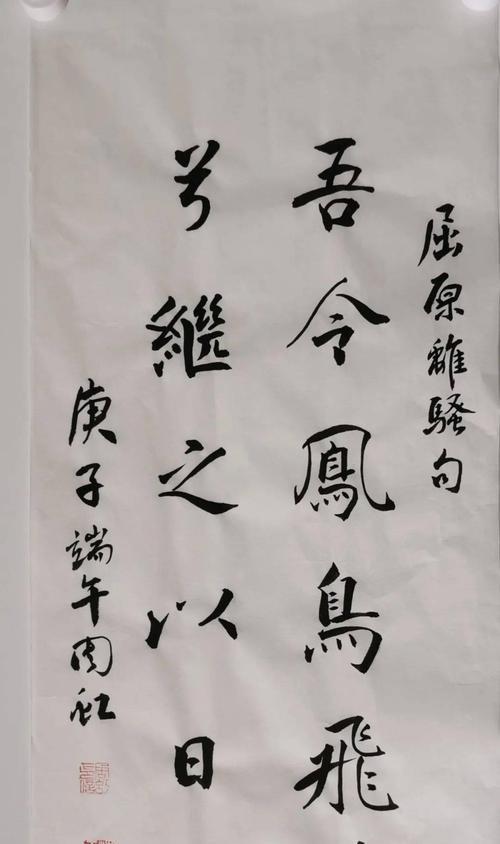 屈原離騷句
吾令鳳鳥飛
兮繼之以日
庚子端午周虹